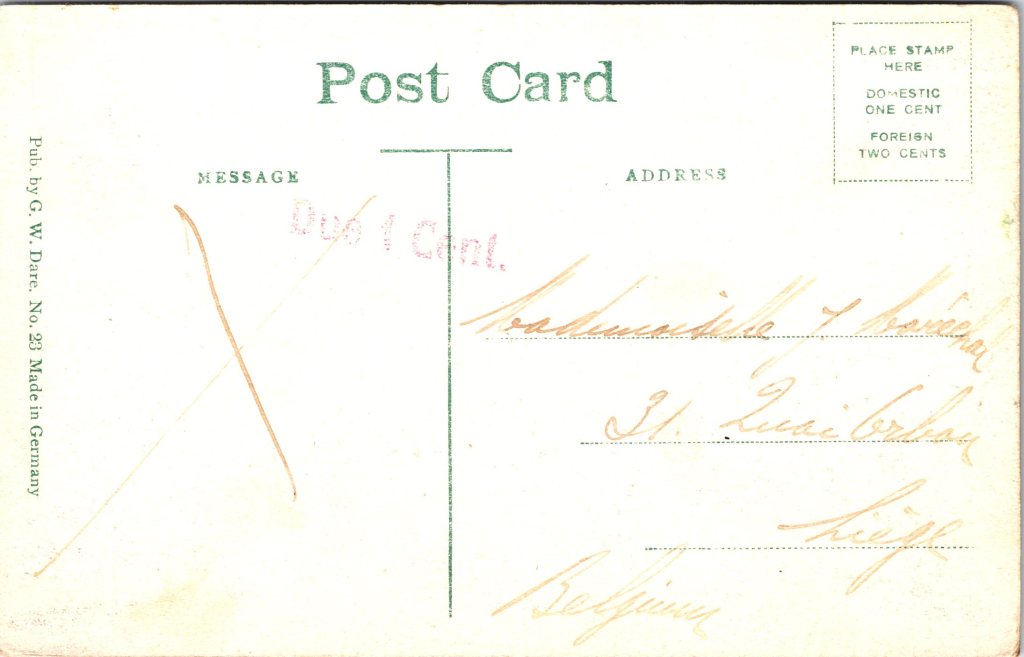 Post Card
PLACE STAMP
HERE
DOMESTIC
ONE CENT
FOREIGN
TWO CENTS
MESSAGE
ADDRESS
Due 1 Cent.
Mademoiselle J Maréchal
31. Quai Orban
Liège
Belgium
Pub. by G. W. Dare. No. 23 Made in Germany